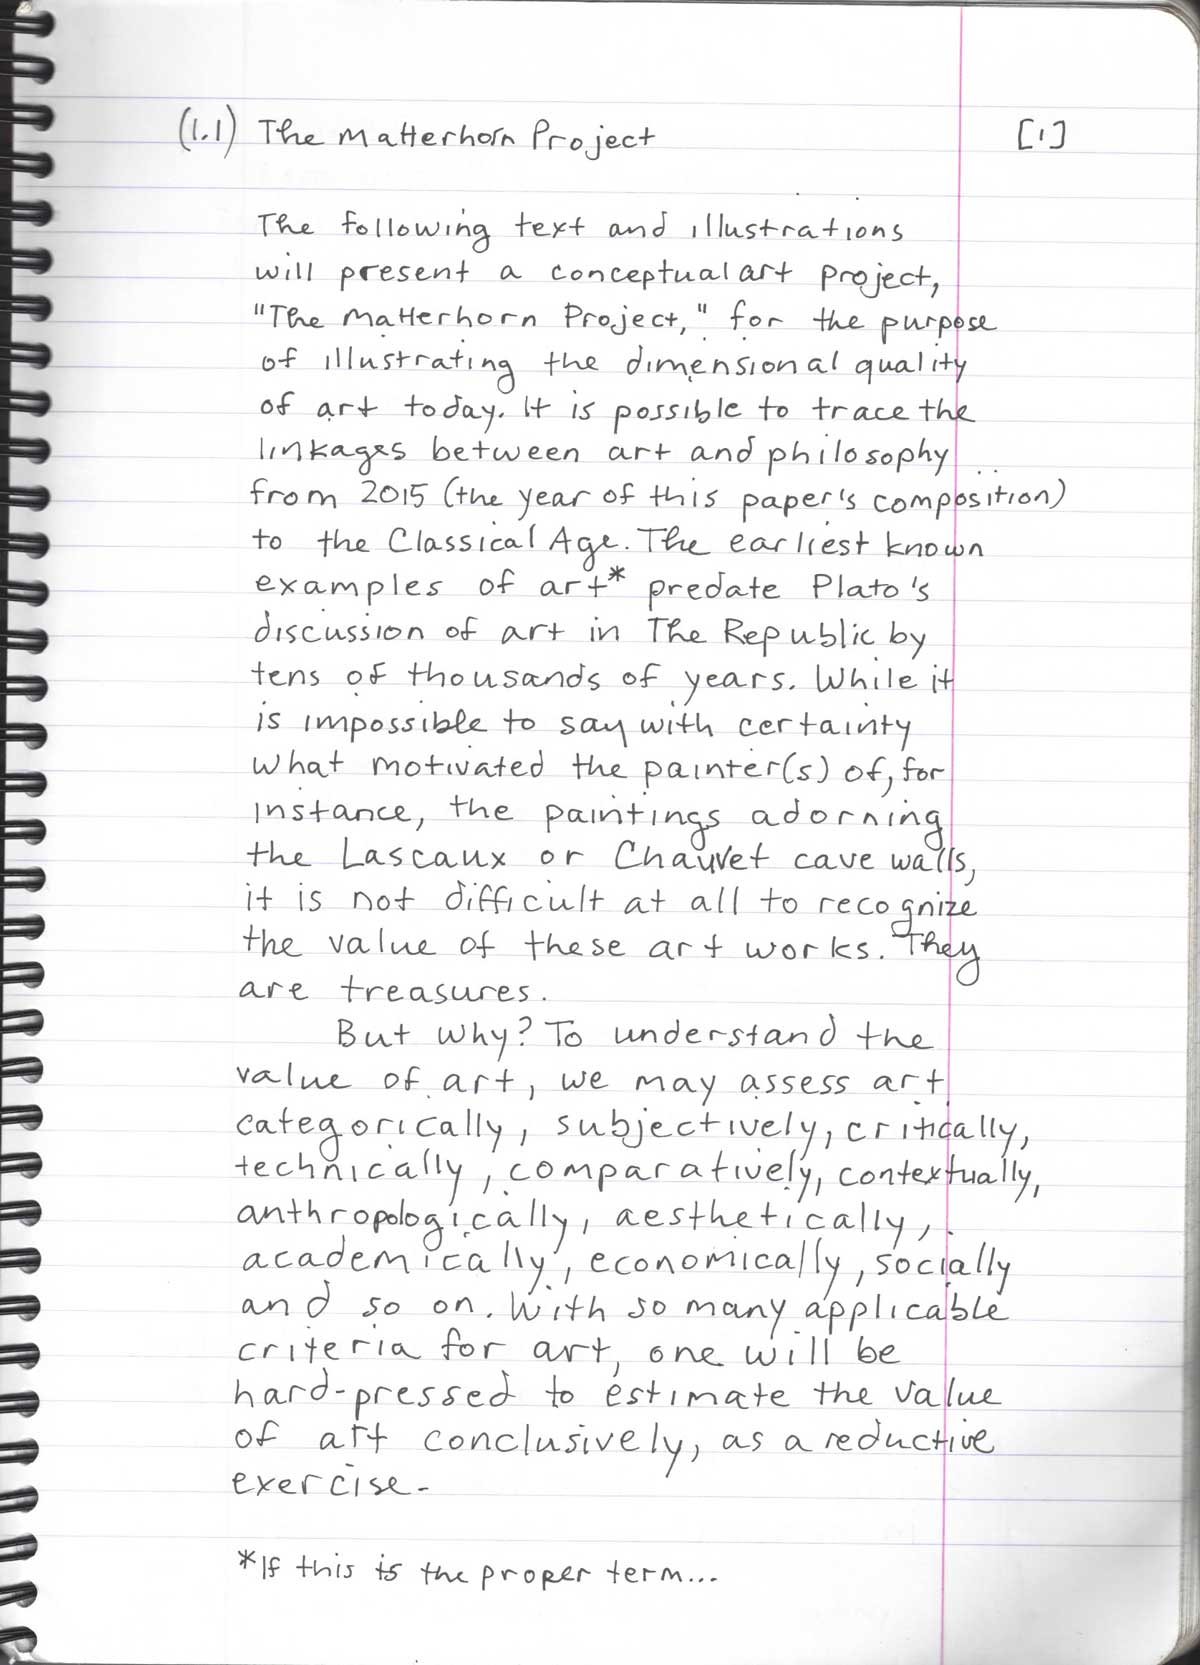 (1.1) The Matterhorn Project [1]
The following text and illustrations
will present a conceptual art project,
"The Matterhorn Project," for the purpose
of illustrating the dimensional quality
of art today. It is possible to trace the
linkages between art and philosophy
from 2015 (the year of this paper's composition)
to the Classical Age. The earliest known
examples of art* predate Plato's
discussion of art in The Republic by
tens of thousands of years. While it
is impossible to say with certainty
what motivated the painter(s) of, for
instance, the paintings adorning
the Lascaux or Chauvet cave walls,
it is not difficult at all to recognize
the value of these art works. They
are treasures.
But why? To understand the
value of art, we may assess art
categorically, subjectively, critically,
technically, comparatively, contextually,
anthropologically, aesthetically,
academically, economically, socially
and so on. With so many applicable
criteria for art, one will be
hard-pressed to estimate the value
of art conclusively, as a reductive
exercise.
*If this is the proper term...